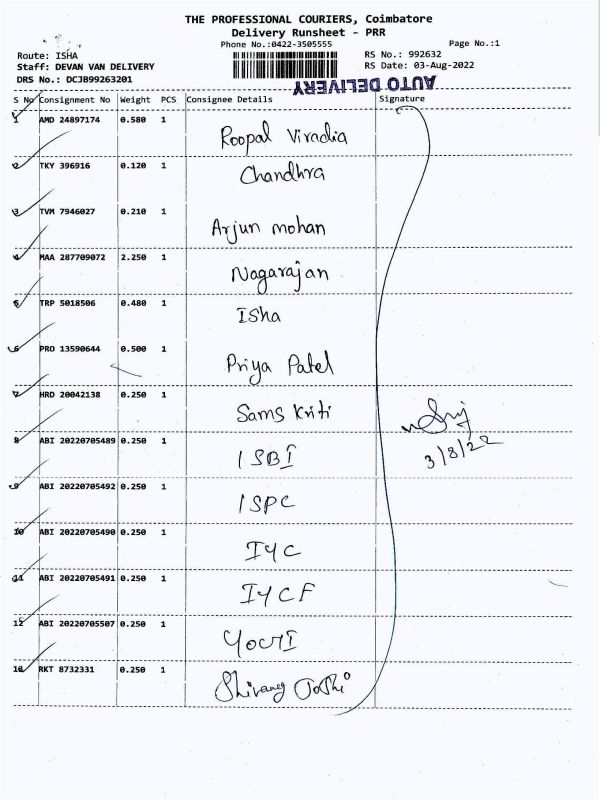 THE PROFESSIONAL COURIERS, Coimbatore
Delivery Runsheet - PRR
Phone No.:0422-3505555
Page No.:1
Route: ISHA
RS No.: 992632
Staff: DEVAN VAN DELIVERY
RS Date: 03-Aug-2022
DRS No.: DCJB99263201
AUTO DELIVERY
S No Consignment No Weight PCS Consignee Details Signature
1 AMD 24897174 0.580 1 Roopal Viradia
2 TKY 396916 0.120 1 Chandhra
3 TVM 7946027 0.210 1 Arjun mohan
4 MAA 287709072 2.250 1 Nagarajan
5 TRP 5018506 0.480 1 Isha
6 PRO 13590644 0.500 1 Priya Patel
7 HRD 20042138 0.250 1 Sams Kriti
8 ABI 20220705489 0.250 1 ISBI
3/8/22
9 ABI 20220705492 0.250 1 ISPC
10 ABI 20220705490 0.250 1 IYC
11 ABI 20220705491 0.250 1 IYCF
12 ABI 20220705507 0.250 1
13 RKT 8732331 0.250 1 Shivang Joshi